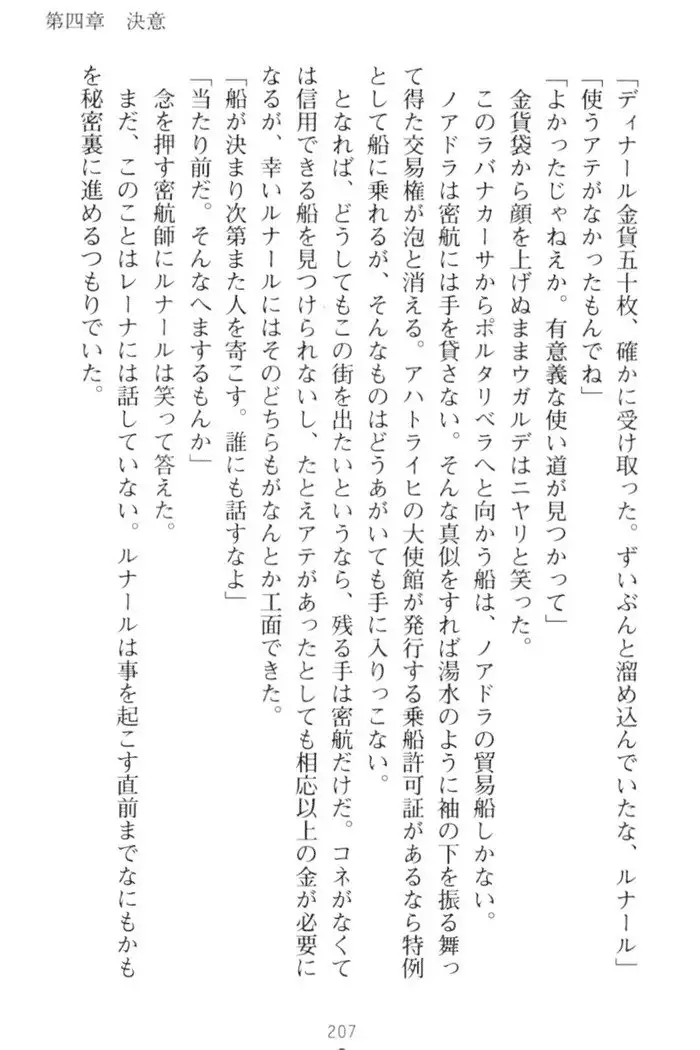 第四章　決意
「ディナール金貨五十枚、確かに受け取った。ずいぶんと溜め込んでいたな、ルナール」
「使うアテがなかったもんでね」
「よかったじゃねえか。有意義な使い道が見つかって」
金貨袋から顔を上げぬままウガルデはニヤリと笑った。
このラバナカーサからポルタリベラへと向かう船は、ノアドラの貿易船しかない。
ノアドラは密航には手を貸さない。そんな真似をすれば湯水のように袖の下を振る舞っ
て得た交易権が泡と消える。アハトライヒの大使館が発行する乗船許可証があるなら特例
として船に乗れるが、そんなものはどうあがいても手に入りっこない。
となれば、どうしてもこの街を出たいというなら、残る手は密航だけだ。コネがなくて
は信用できる船を見つけられないし、たとえアテがあったとしても相応以上の金が必要に
なるが、幸いルナールにはそのどちらもがなんとか工面できた。
「船が決まり次第また人を寄こす。誰にも話すなよ」
「当たり前だ。そんなへまするもんか」
念を押す密航師にルナールは笑って答えた。
まだ、このことはレーナには話していない。ルナールは事を起こす直前までなにもかも
を秘密裏に進めるつもりでいた。
207